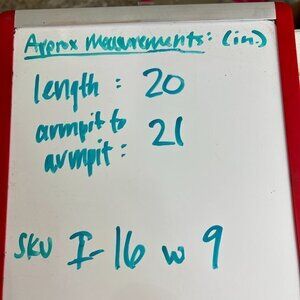 Approx measurements: (in.)
length: 20
armpit to
armpit: 21
SKU I-16 w 9